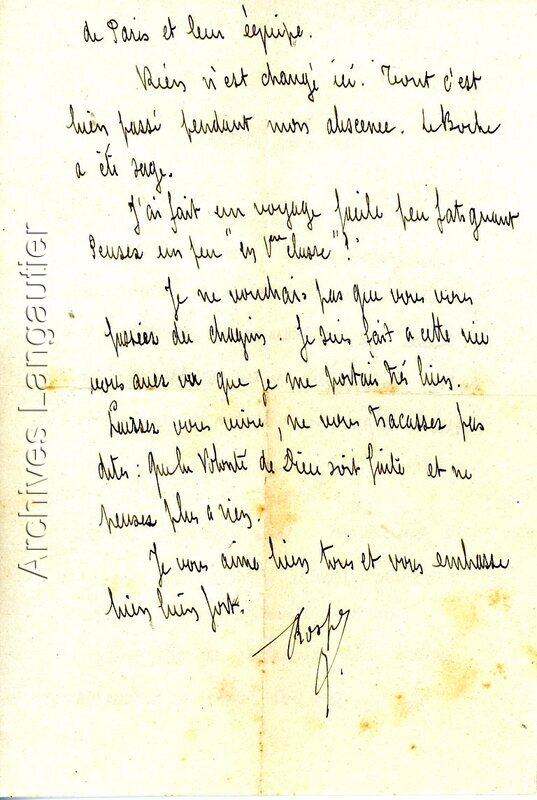 de Paris et leur équipe.
Rien n'est changé ici. Tout c'est
bien passé pendant mon abscence. Le Boche
a été sage.
J'ai fait un voyage facile peu fatiguant
Pensez un peu "en 1ère classe"!
Je ne voudrais pas que vous vous
fassiez du chagrin. Je suis fait a cette vie
vous avez vu que je me portais très bien.
Laissez vous vivre, ne vous tracassez pas
dites: que la Volonté de Dieu soit faite et ne
pensez plus a rien.
Je vous aime bien tous et vous embrasse
bien bien fort.
Archives Langautier